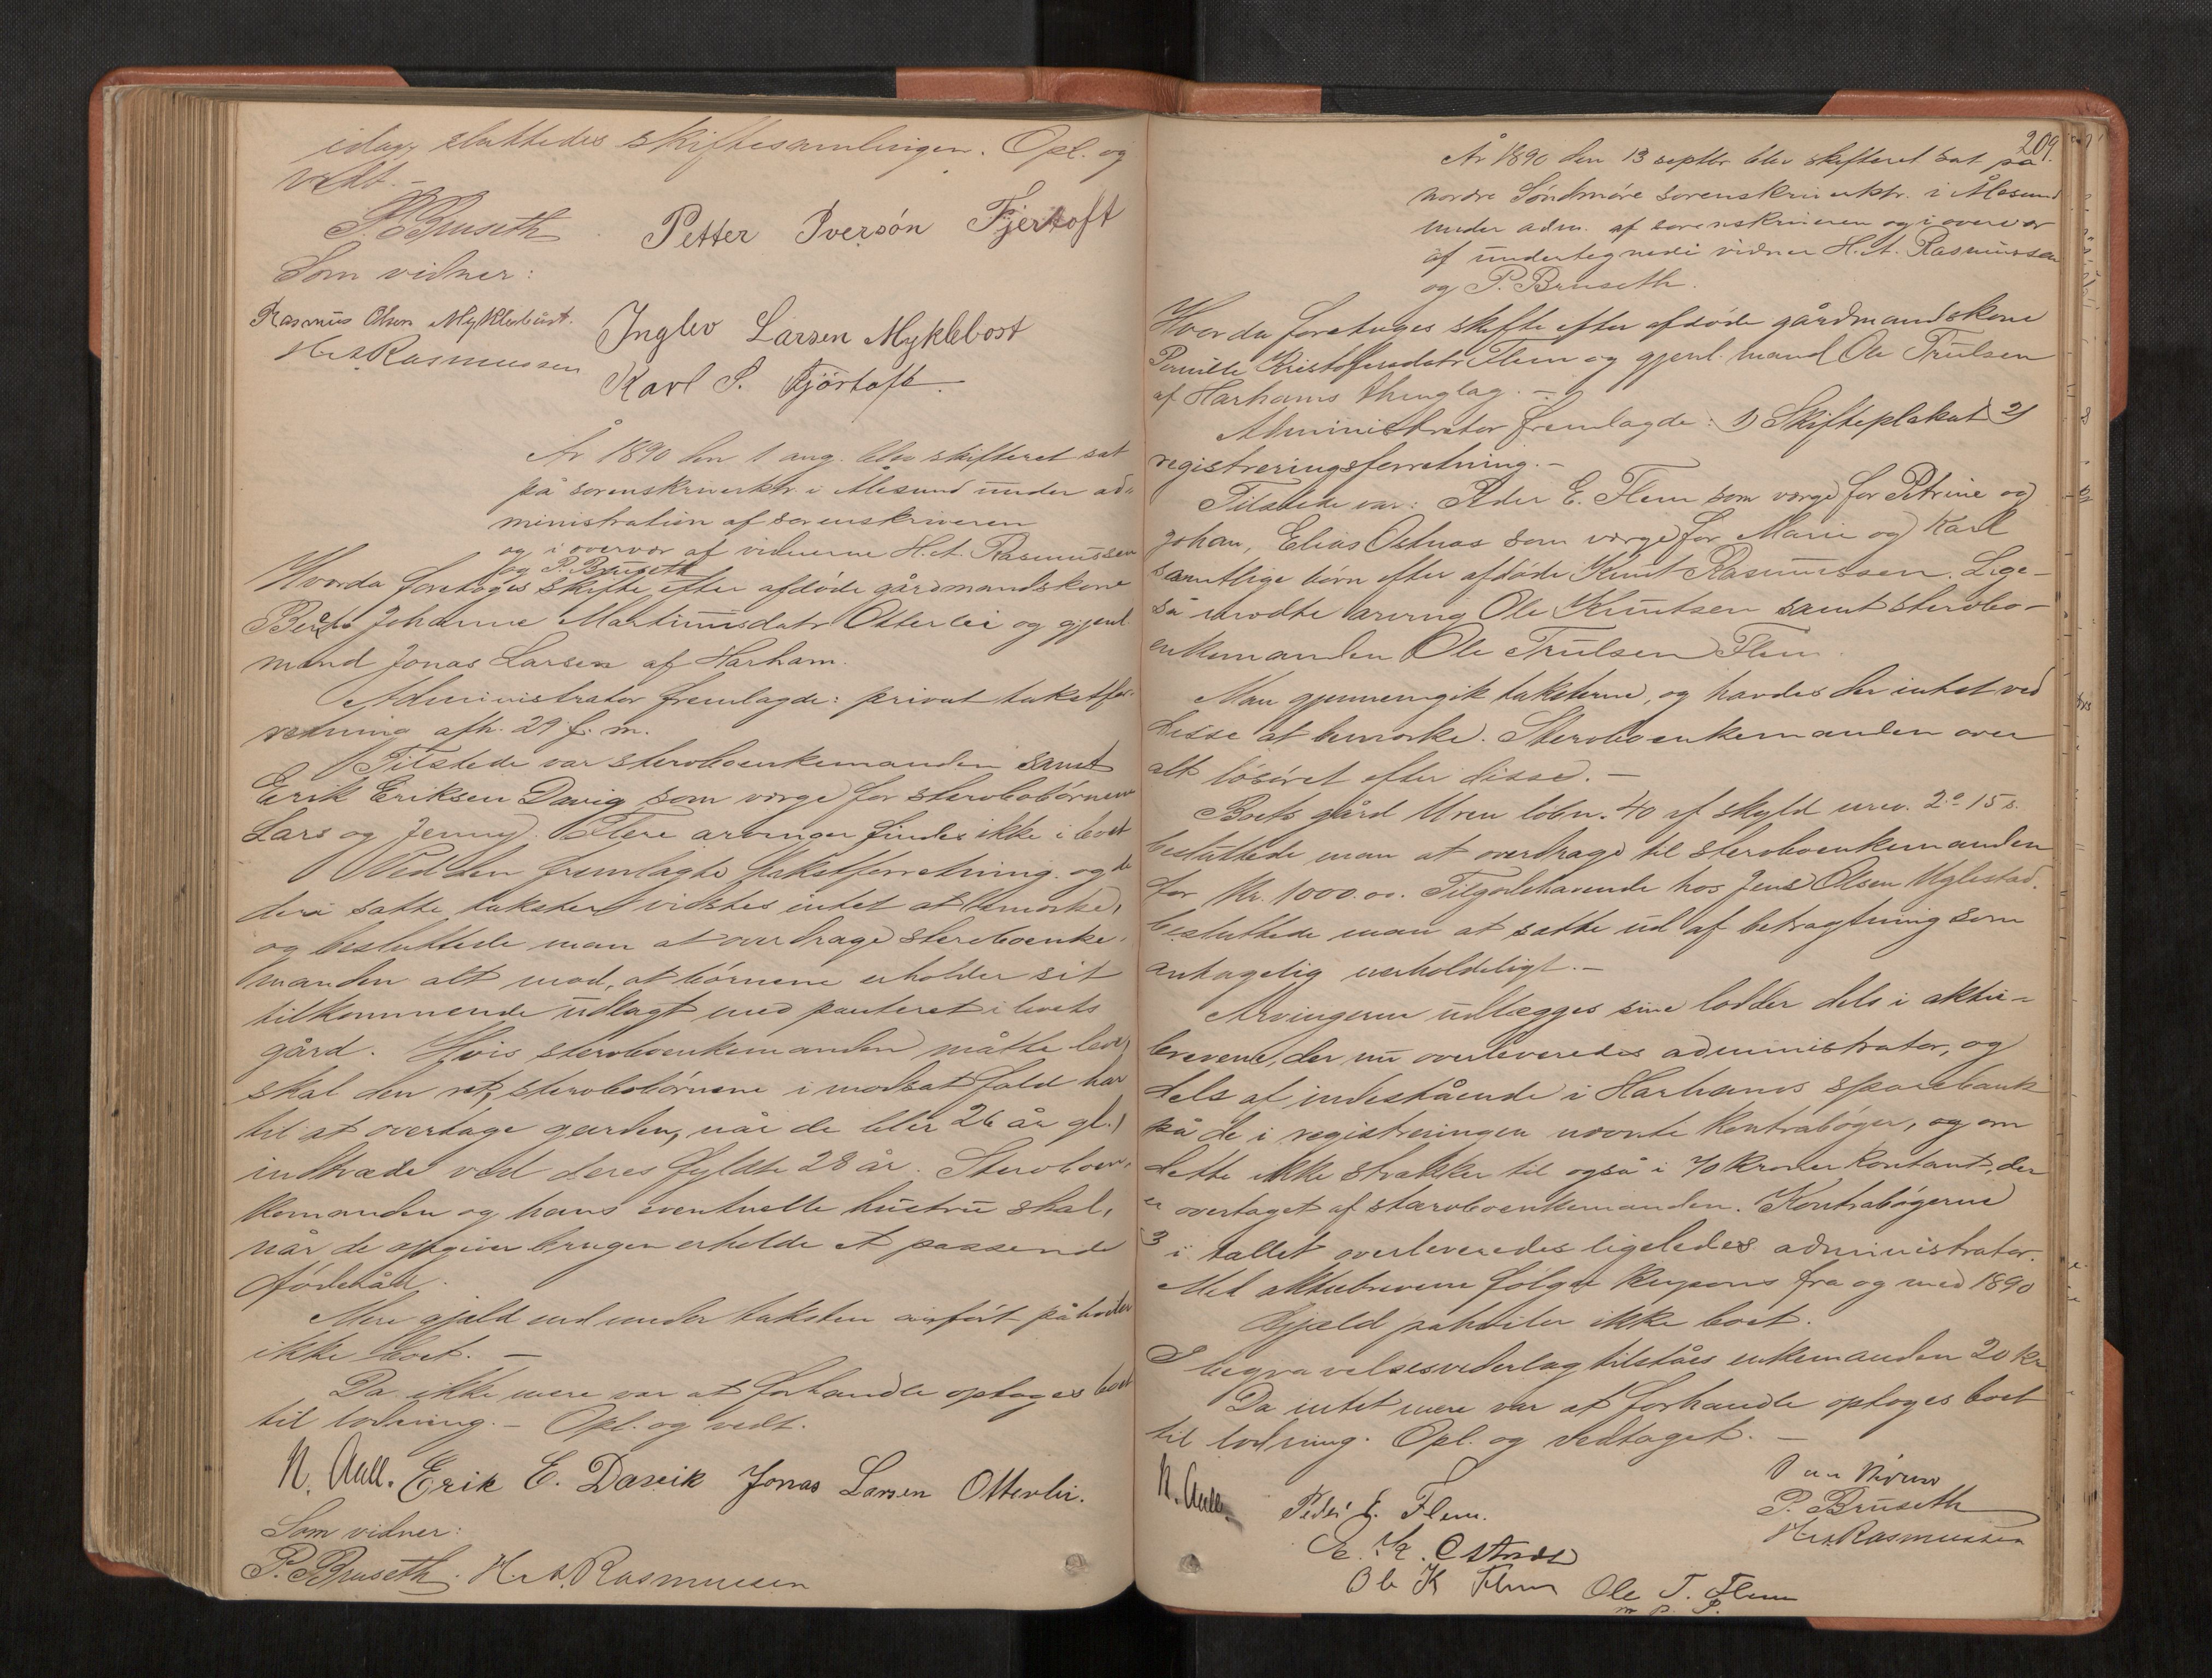 idag, sluttedes skiftesamlingen. Opl. og
vedt. –
P. Bruseth Petter Iversøn Fjertoft
Som vidner:
Rasmus Olsen Myklebust. Inglev Larsen Myklebost
H. A. Rasmussen Karl P. Fjörtoft.
År 1890 den 1 aug. blev skifteret sat
på sorenskriverktr. i Ålesund under ad-
ministration af sorenskriveren
og i overvær af vidnerne H. A. Rasmussen
og P. Bruseth
Hvorda foretoges skifte efter afdøde gårdmandskone
Johanne Martinusdatr Otterlei og gjenl.
mand Jonas Larsen af Harham.
Administrator fremlagde: privat takstfor-
retning afh. 29 f. m.
Tilstede var stervboenkemanden samt
Erik Eriksen Davig som værge for stervbobörnene
Lars og Jenny. Flere arvinger findes ikke i boet
Ved den fremlagte takstforretning og de
deri satte takster vidstes intet at bemærke,
og besluttede man at overdrage stervboenke-
manden alt mod, at börnene erholder sit
tilkommende udlagt med panteret i boets
gård. Hvis stervboenkemanden måtte leve,
skal den ret, stervbobörnene i modsat fald har
til at overtage gården, når de blir 26 år gl.,
indtræde ved deres fyldte 28 år. Stervboen-
kemanden og hans eventuelle hustru skal,
når de opgiver brugen erholde et passende
föderåd.
Mere gjæld end under taksten anført påhviler
ikke boet. –
Da ikke mere var at forhandle optoges boet
til lodning. – Opl. og vedt.
N. Aall. Erik E. Davik Jonas Larsen Otterlei.
Som vidner:
P. Bruseth. H. A. Rasmussen
209.
År 1890 den 13 septbr blev skifteret sat på
nordre Söndmöre sorenskriverktr. i Ålesund
under adm. af sorenskriveren og i overvær
af undertegnede vidner H. A. Rasmussen
og P. Bruseth.
Hvorda foretoges skifte efter afdøde gårdmandskone
Pernille Kristofersdatr Flem og gjenl. mand Ole Trulsen
af Harhams thinglag. –
Administrator fremlagde: 1) Skifteplakat 2)
registreringsforretning. –
Tilstede var: Peder E. Flem som værge for Petrine og
Johan, Elias Ostnæs som værge for Marie og Karl
samtlige børn efter afdöde Knut Rasmussen. Lige-
så mødte arving Ole Knutsen samt stervbo-
enkemanden Ole Trulsen Flem.
Man gjennemgik taksterne, og havdes der intet ved
disse at bemærke. Stervboenkemanden over
alt lösöret efter disse. –
Boets gård Uren löbn. 40 af skyld urev. 2 o 15 s.
besluttede man at overdrage til stervboenkemanden
for Kr. 1000.00. Tilgodehavende hos Jens Olsen Uglestad.
besluttede man at sætte ud af betragtning som
antagelig uerholdeligt. –
Arvingerne udlægges sine lodder dels i aktie-
brevene, der nu overleveredes administrator, og
dels af indestående i Harhams sparebank
på de i registreringen nævnte kontrabøger, og om
dette ikke strækker til også i 70 kroner kontant, der
er overtaget af stervboenkemanden. Kontrabögerne
3 i tallet overleveredes ligeledes administrator.
Med aktiebrevene følger kupons fra og med 1890
Gjæld påhviler ikke boet.
I begravelsesvederlag tilståes enkemanden 20 kr
Da intet mere var at forhandle optoges boet
til lodning. Opl. og vedtaget. –
N. Aall. Peder E. Flem. Som vidner
P. Bruseth
E. K. Ostnæs H. A. Rasmussen
Ole K Flem Ole T. Flem
m. p. P.